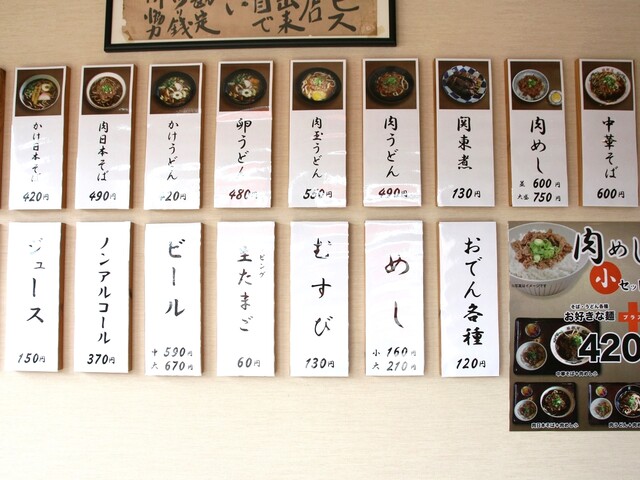 中華そば
600円
肉めし
並 600円
大盛 750円
関東煮
130円
肉うどん
490円
肉玉うどん
550円
卵うどん
480円
かけうどん
420円
肉日本そば
490円
かけ日本そば
420円
おでん各種
120円
めし
小 160円
大 210円
むすび
130円
ピンク
生たまご
60円
ビール
中 590円
大 670円
ノンアルコール
370円
ジュース
150円
肉めし
小セット
そば・うどん各種
お好きな麺
プラス
420
中華そば+肉めし小
肉日本そば+肉めし小
肉うどん+肉め